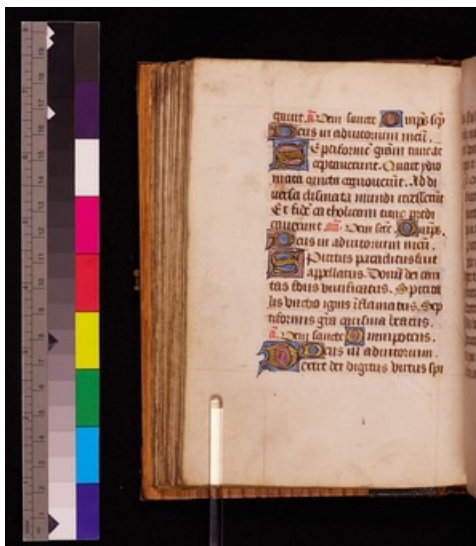 quiuit. a᷉. Veni sancte Omp̄s sēp
Deus in adiutorium meū.
Septiforme grām tunc ac
ceptauerunt. Quare ydio
mata cuncta cognouerūt. Ad di
uersa climata mundi recesserūt
Et fidē catholicam tunc predi
cauerunt añ. Veni scē. Omīps.
Deus in adiutorium meū.
Spiritus paraclitus fuit
appellatus. Donū dei cari
tas fons uiuificatus. Spirita
lis unctio ignis īflamatus. Sep
tiformis grā carisma beatus.
a᷉. Veni sancte Omnipotens.
Deus in adiutorium.
Dextre dei digitus uirtus spi